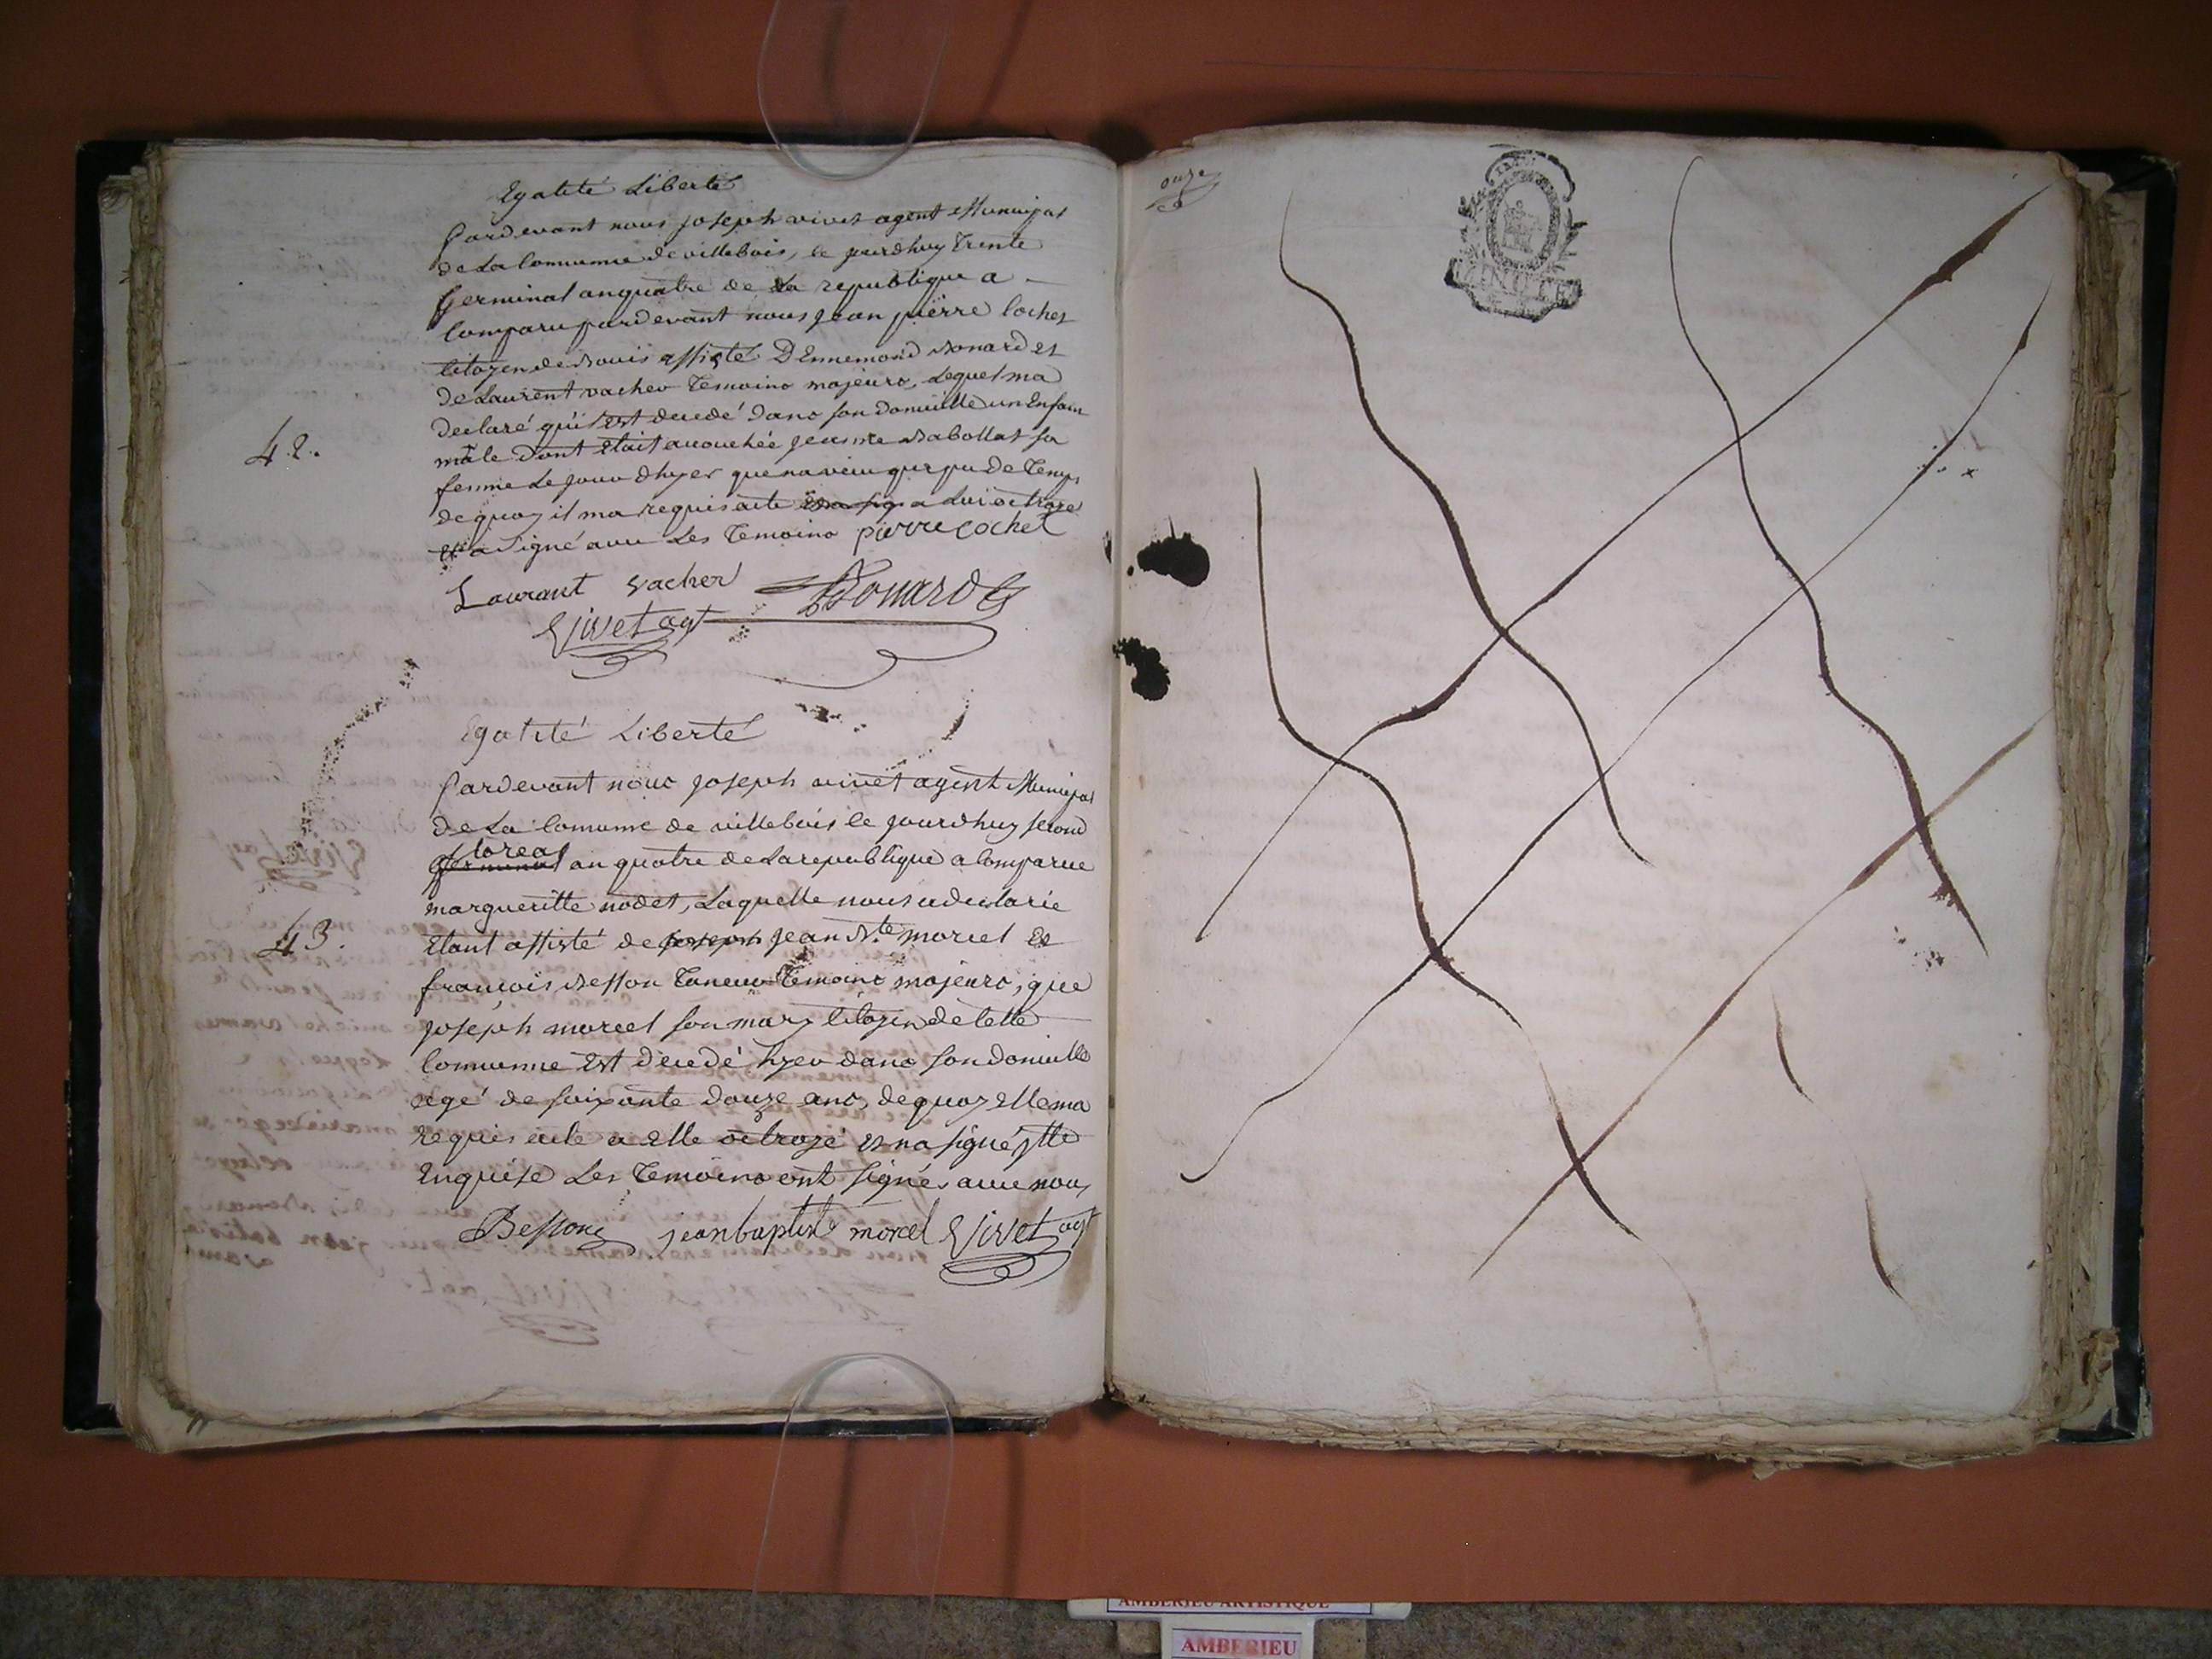 Egalité Liberté
Pardevant nous joseph vivet agent Municipal
de La Commune de villebois, le jourdhuy Trente
Germinal an quatre de La republique a
Comparu pardevant nous jean pierre Cochet
Citoyen de Bouis assisté D'Ennemond Bonard et
de Laurent vacher Temoins majeurs, Lequel ma
declaré qu'il est decedé dans son Domicille un Enfant
42.
mâle Dont Etait acouchée jeanne Rabollat sa
femme Le jour d'hyer que na vécu que peu de Temps
de quoy il ma requis acte a Lui octroyé
et a Signé avec Les Temoins pierre cochet
Laurant vacher Bonard
Vivet agt
Egalité Liberté
Pardevant nous joseph vivet agent Municipal
de La Comune de villebois le jourdhuy second
floreal
germinal an quatre de La republique a Comparue
margueritte nodet, Laquelle nous a declarée
43.
Etant assisté de joseph jean Bte morcel Et
francois Besson Temoins majeurs, que
joseph morcel son mary Citoyen de Cette
Commune Est decedé hyer dans son domicille
agé de soixante douze ans, de quoy elle ma
requis acte a elle octroyé et na signé
Enquise Les Temoins ont signés avec nous
Besson jean baptiste morcel Vivet agt
onze
MINUTE
AMBERIEU ARTISTIQUE
AMBERIEU